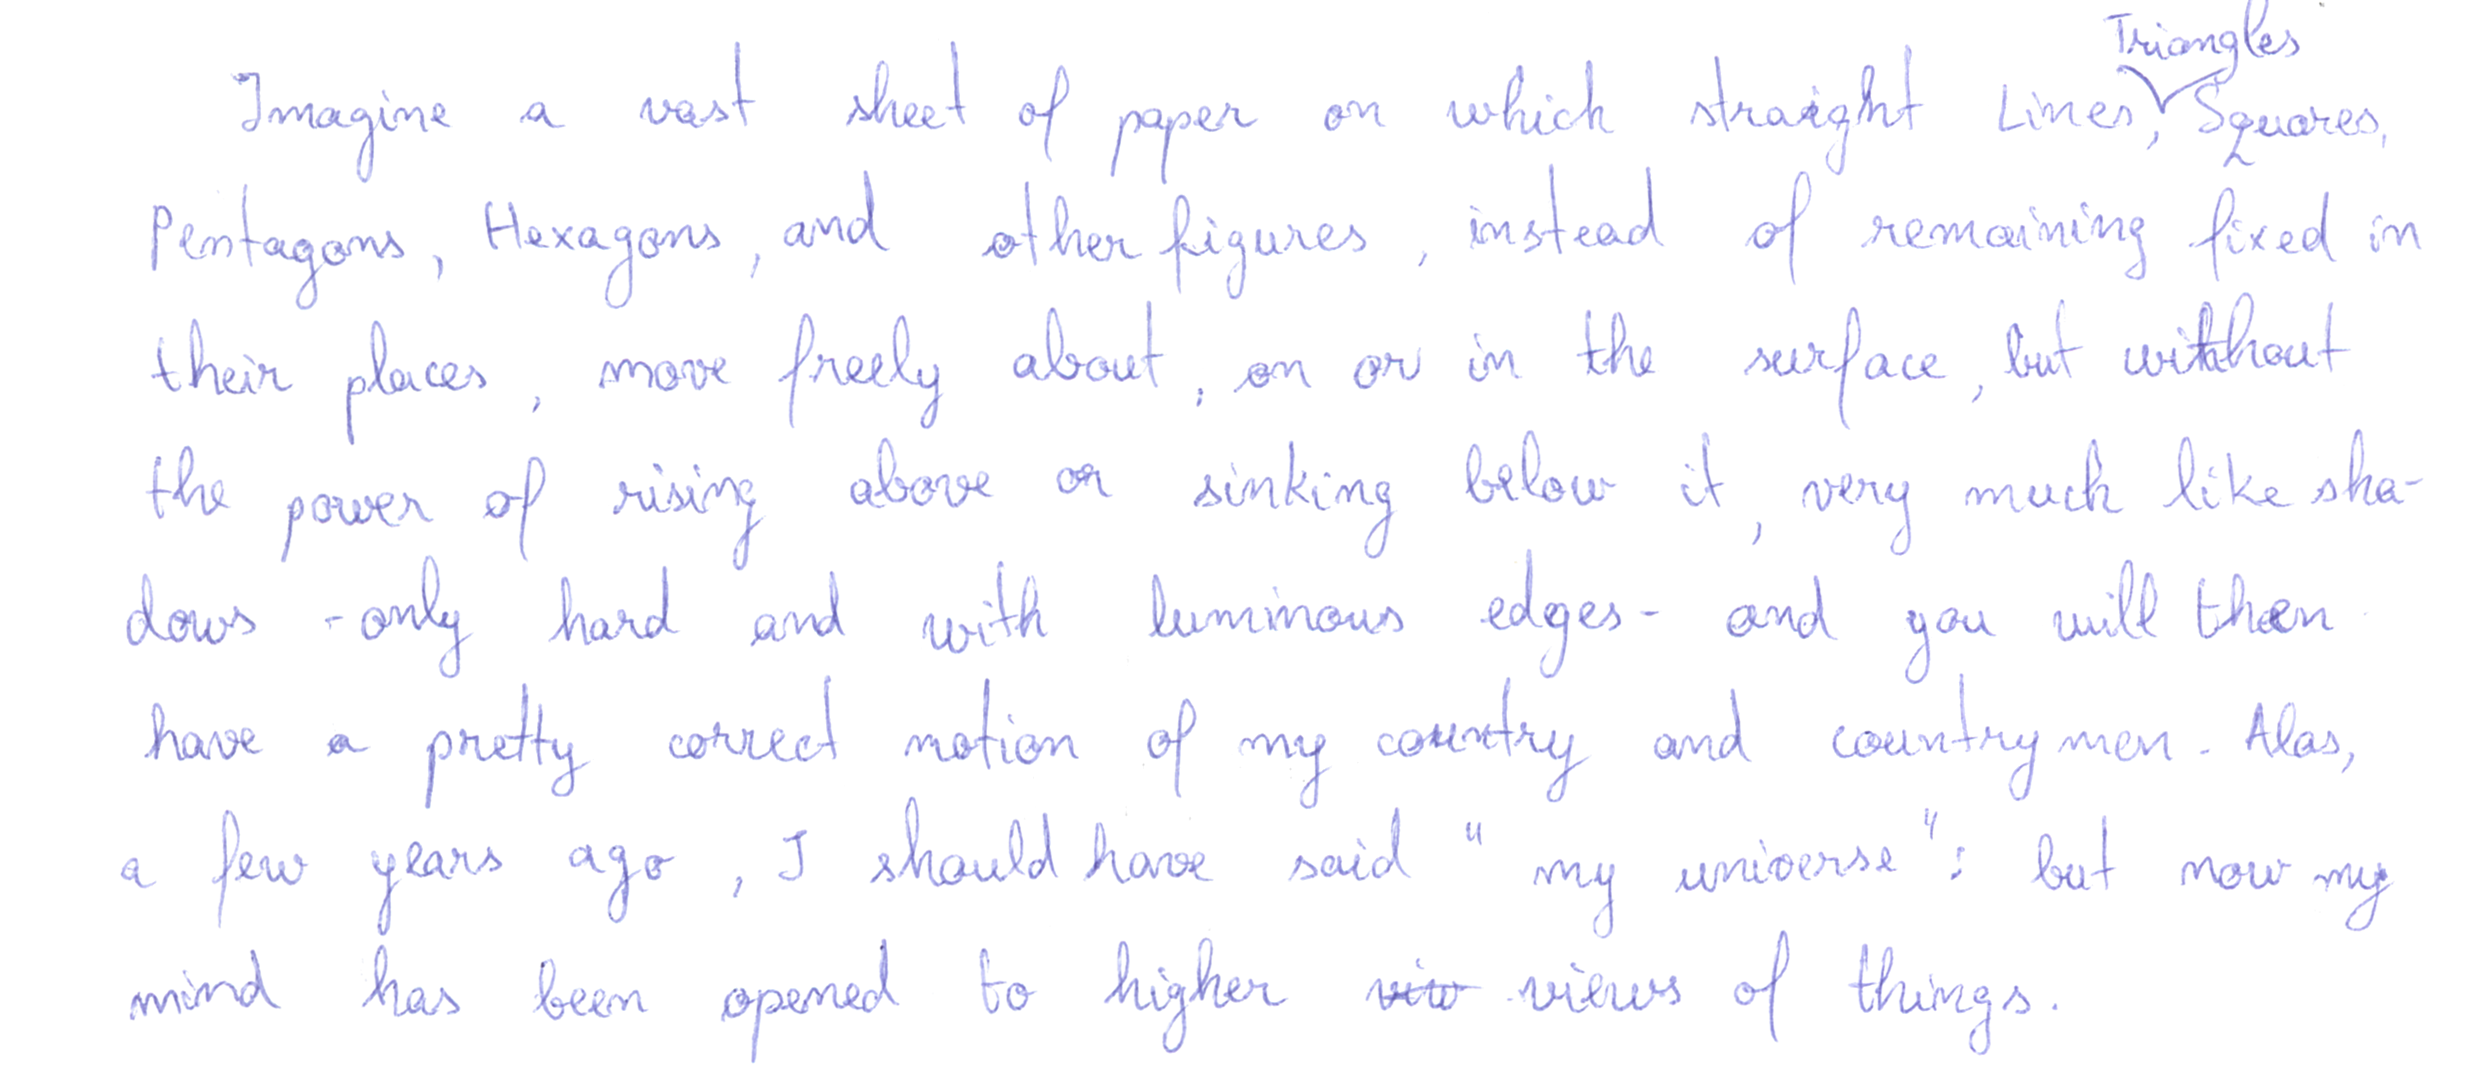 Imagine a vast sheet of paper on which straight Lines, Triangles Squares,
Pentagons, Hexagons, and other figures, instead of remaining fixed in
their places, move freely about, on or in the surface, but without
the power of rising above or sinking below it, very much like sha-
dows -only hard and with luminous edges- and you will then
have a pretty correct notion of my country and countrymen. Alas,
a few years ago, I should have said "my universe": but now my
mind has been opened to higher viw views of things.